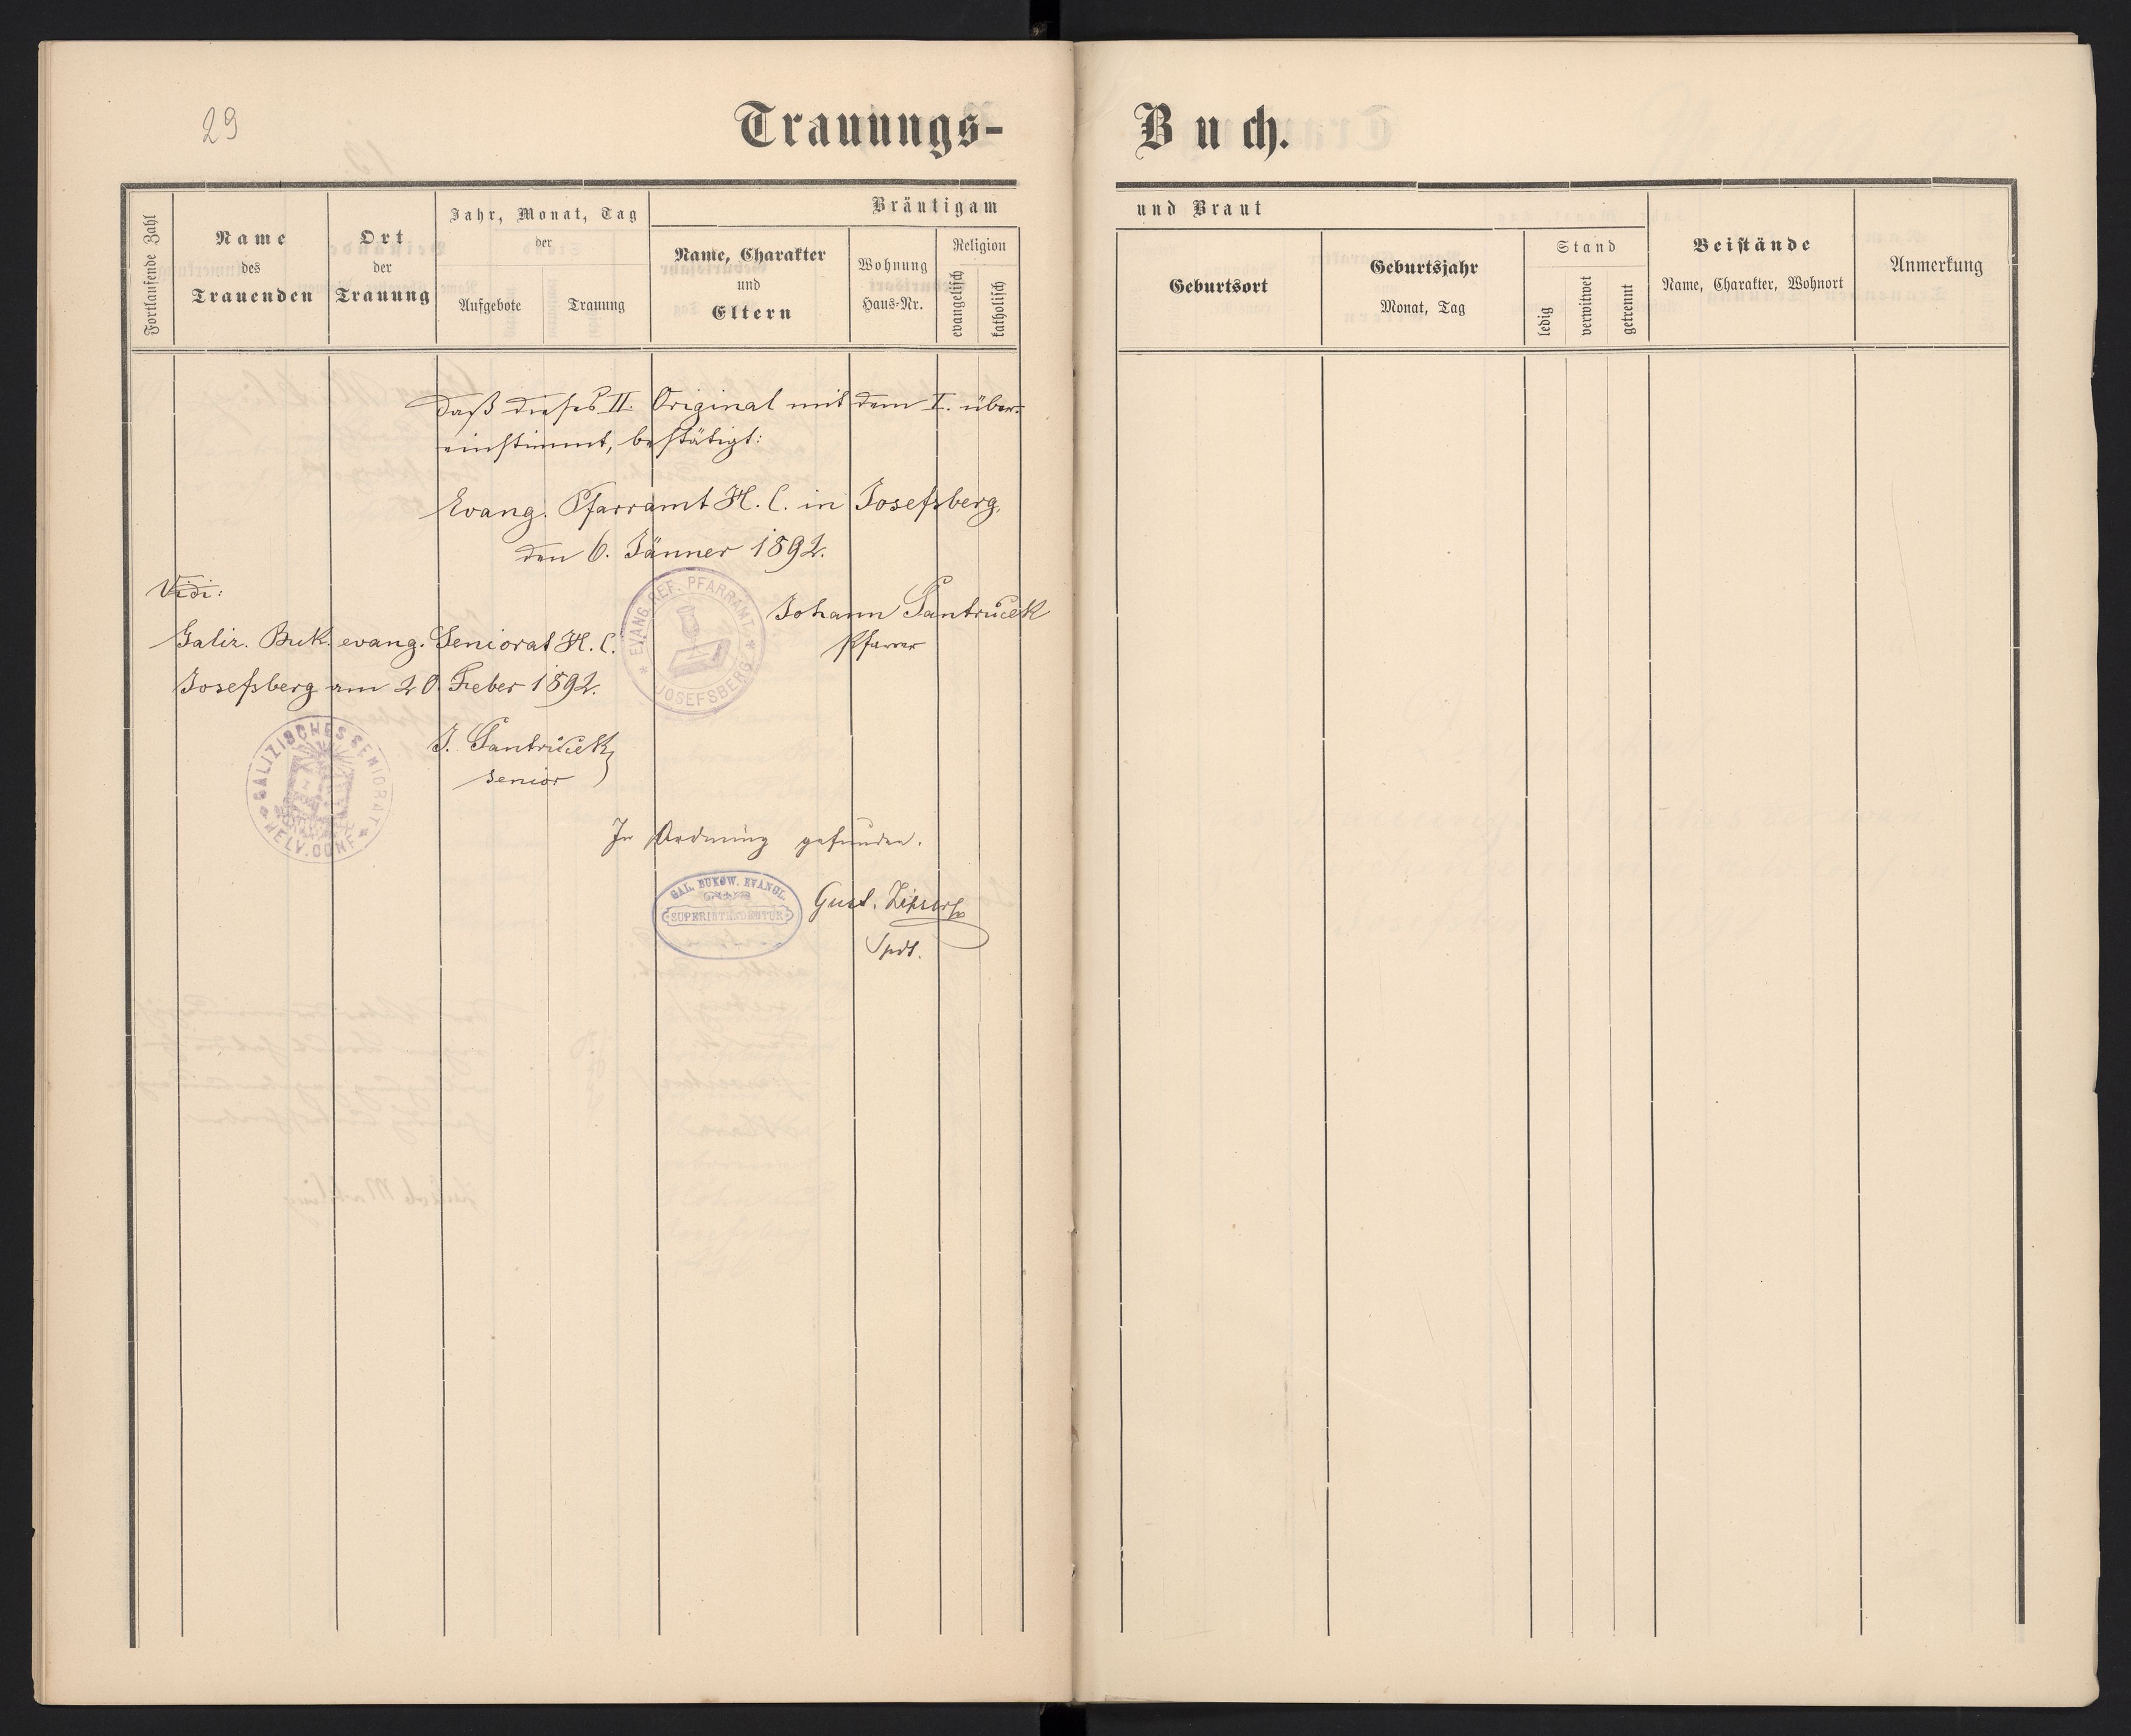 29
Trauungs-
Buch.
Fortlaufende Zahl
Name
des
Trauenden
Ort
der
Trauung
Jahr, Monat, Tag
der
Aufgebote
Trauung
Bräutigam
Name, Charakter
und
Eltern
Wohnung
Haus-Nr.
Religion
evangelisch
katholisch
und Braut
Geburtsort
Geburtsjahr
Monat, Tag
Stand
ledig
verwitwet
getrennt
Beistände
Name, Charakter, Wohnort
Anmerkung
Daß dieses II. Original mit dem I. über-
einstimmt, bestätigt:
Evang. Pfarramt H. C. in Josefsberg,
den 6. Jänner 1892.
EVANG. REF. PFARRAMT
JOSEFSBERG
Johann Pantruček
Pfarrer
Vidi:
Galiz. Buk. evang. Seniorat H. C.
Josefsberg am 20. Feber 1892.
GALIZISCHES SENIORAT
HELV. CONF.
J. Pantruček
Senior
In Ordnung gefunden.
GAL. BUKOW. EVANGL.
SUPERINTENDENTUR
Gust. Zipser
Spdt.